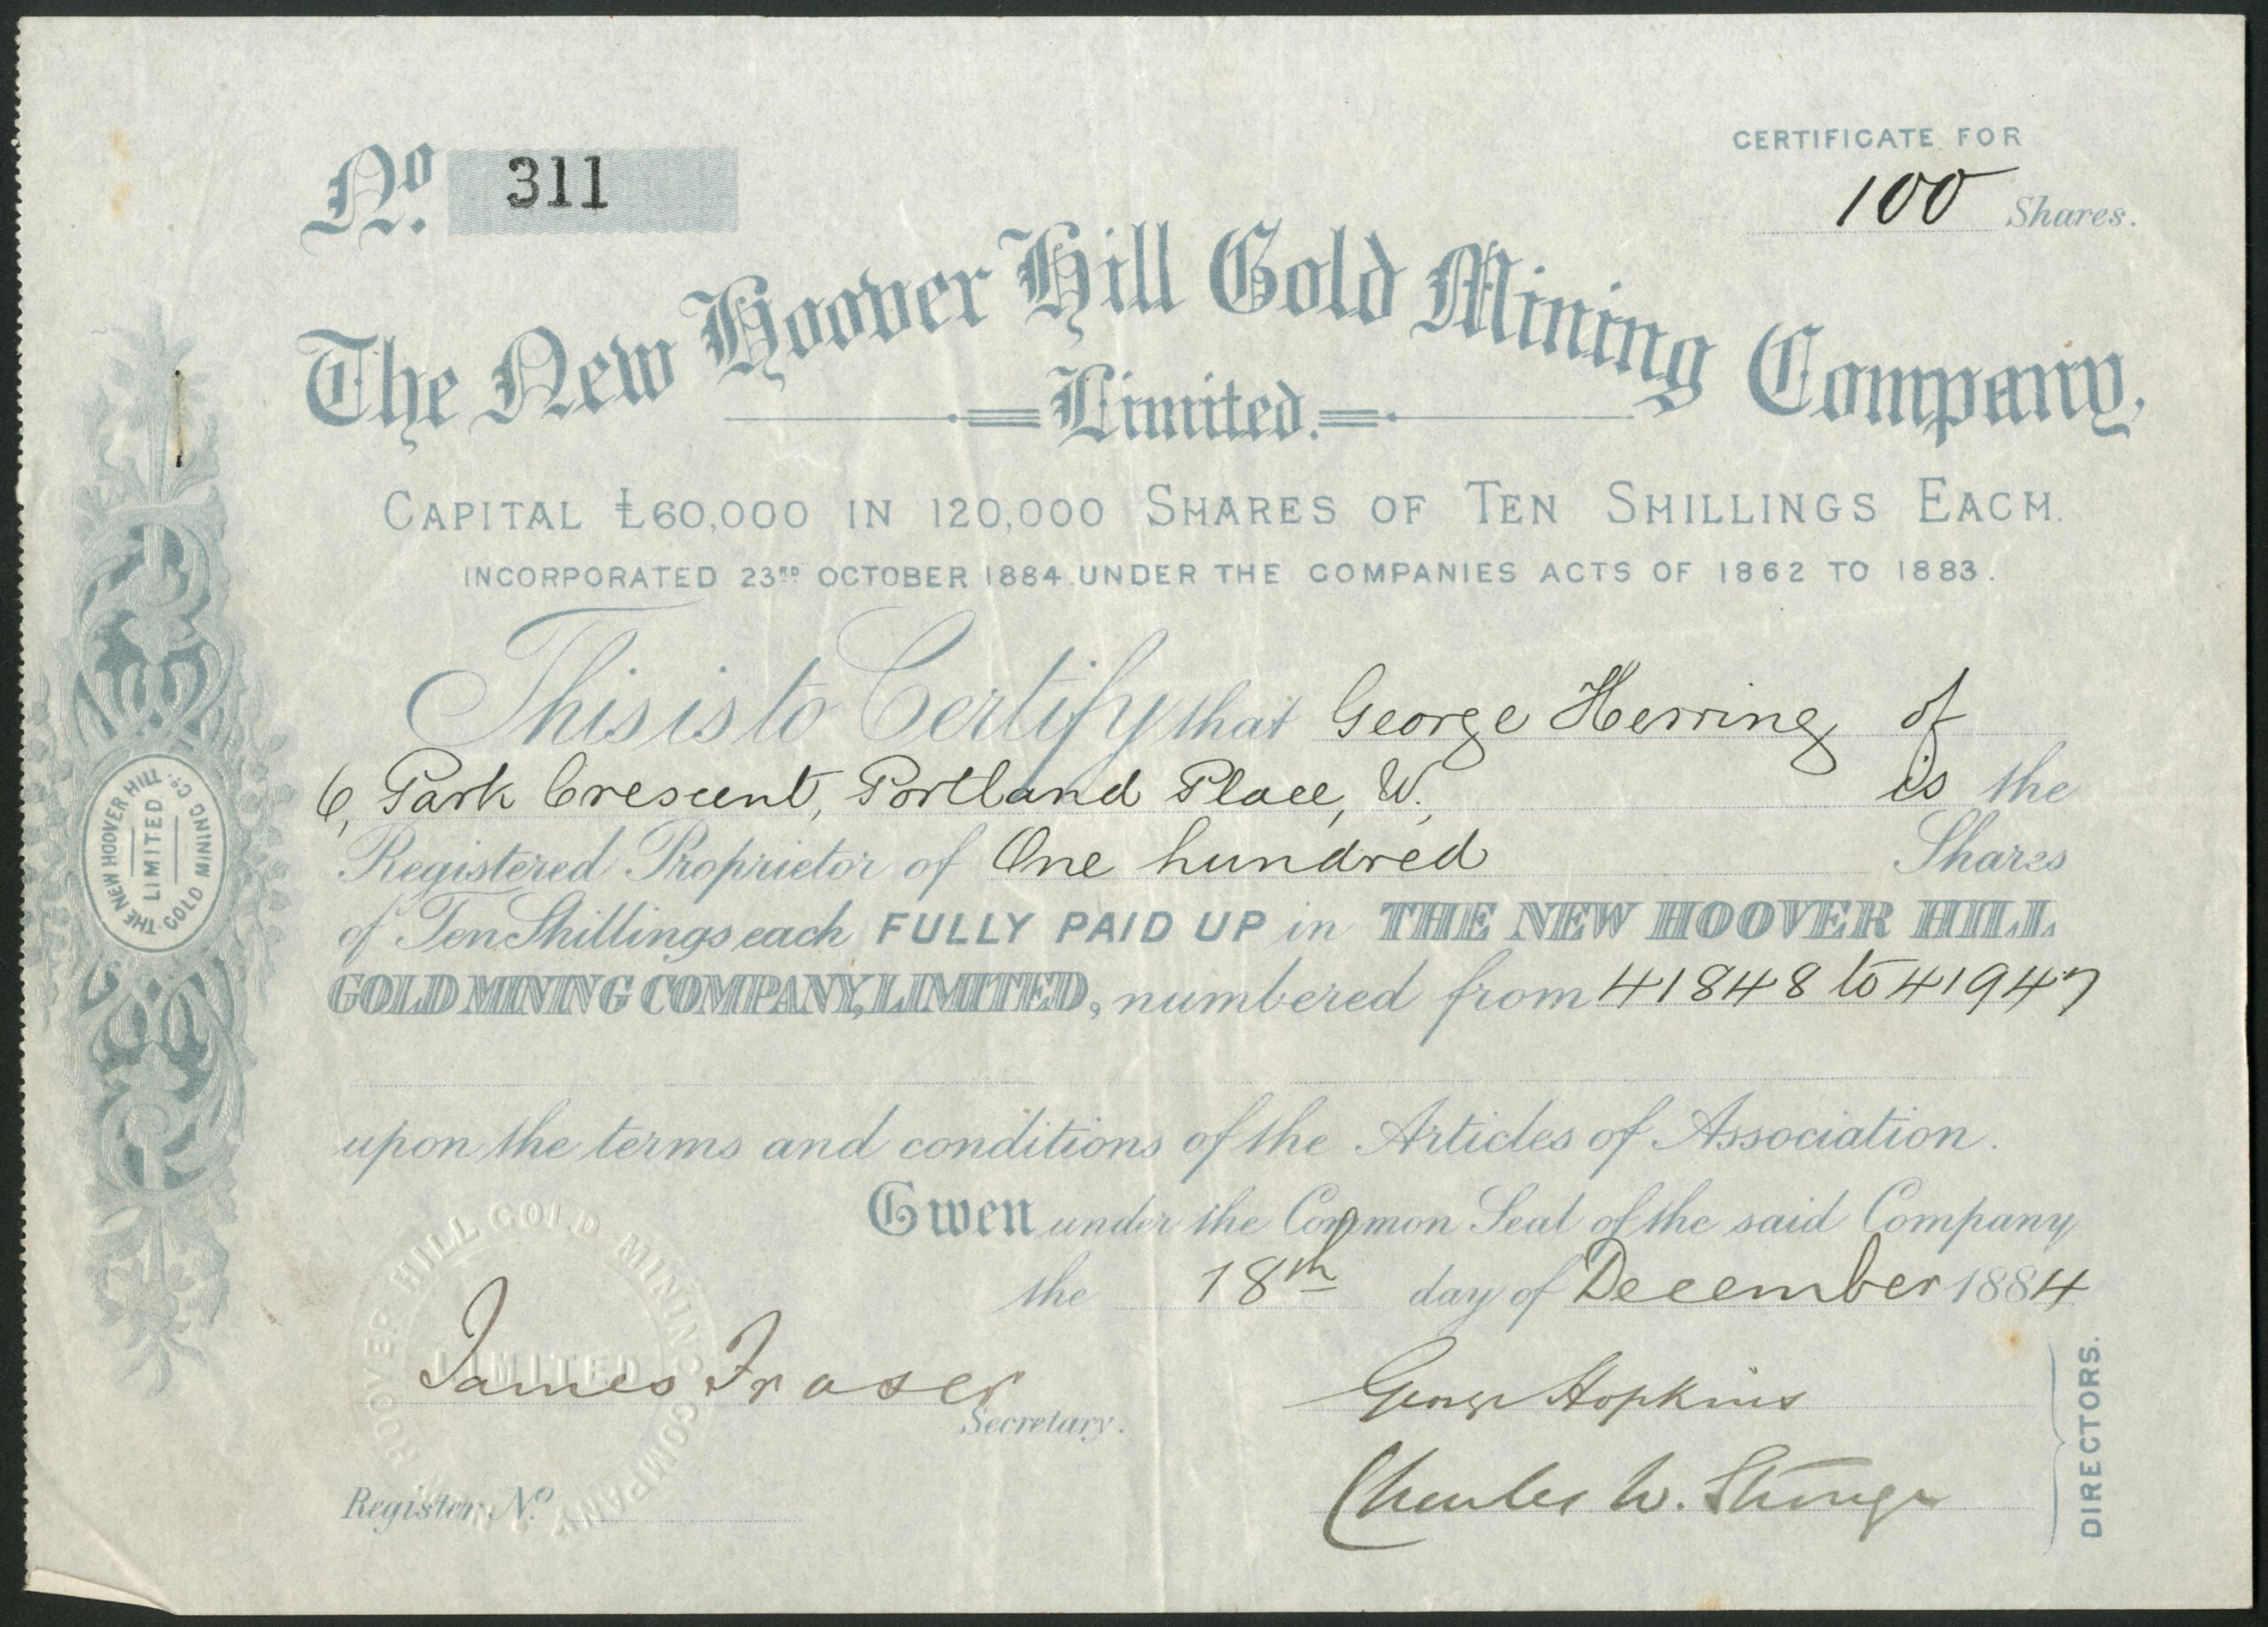 No. 311
CERTIFICATE FOR
100 Shares.
The New Hoover Hill Gold Mining Company,
Limited.
CAPITAL £60,000 IN 120,000 SHARES OF TEN SHILLINGS EACH.
INCORPORATED 23RD OCTOBER 1884 UNDER THE COMPANIES ACTS OF 1862 TO 1883.
This is to Certify that George Herring of
6, Park Crescent, Portland Place, W. is the
Registered Proprietor of One hundred Shares
of Ten Shillings each FULLY PAID UP in THE NEW HOOVER HILL
GOLD MINING COMPANY, LIMITED, numbered from 41848 to 41947
upon the terms and conditions of the Articles of Association.
Given under the Common Seal of the said Company
the 18th day of December 1884
James Fraser
Secretary.
George Hopkins
Charles W.
DIRECTORS.
Register No.
THE NEW HOOVER HILL
GOLD MINING Co.
LIMITED
NEW HOOVER HILL GOLD MINING COMPANY
LIMITED